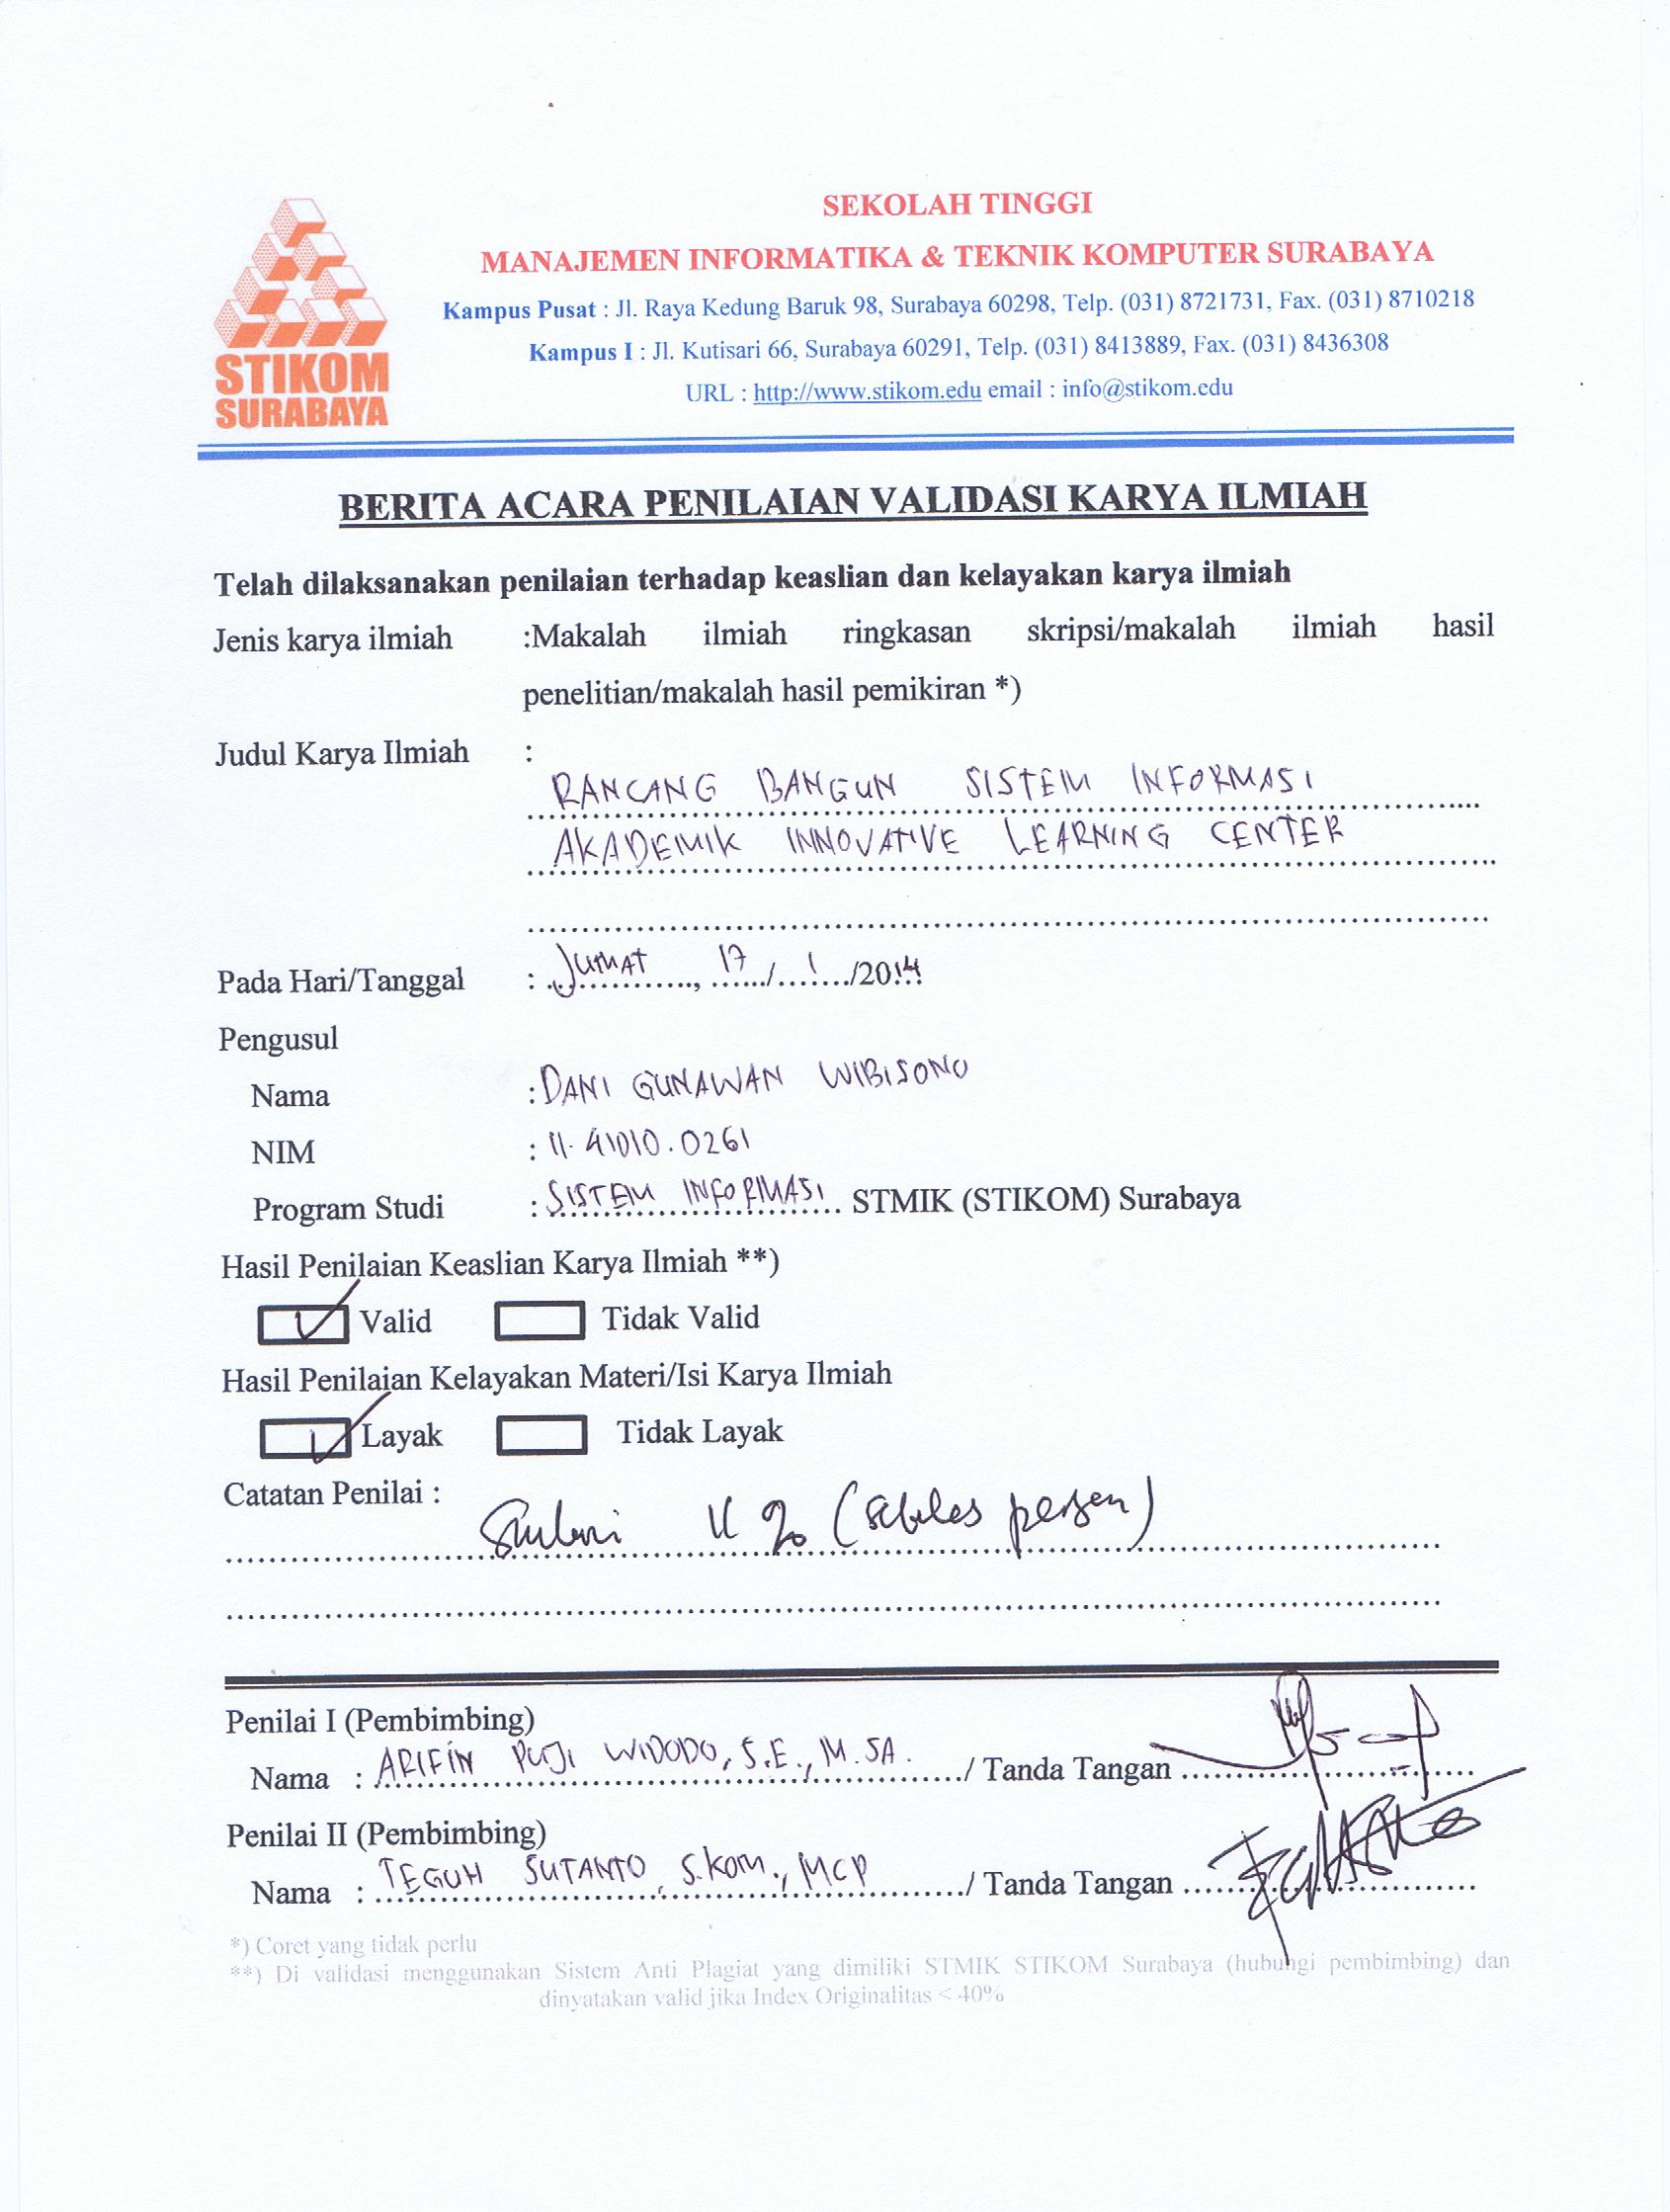 STIKOM
SURABAYA
SEKOLAH TINGGI
MANAJEMEN INFORMATIKA & TEKNIK KOMPUTER SURABAYA
Kampus Pusat : Jl. Raya Kedung Baruk 98, Surabaya 60298, Telp. (031) 8721731, Fax. (031) 8710218
Kampus I : Jl. Kutisari 66, Surabaya 60291, Telp. (031) 8413889, Fax. (031) 8436308
URL : http://www.stikom.edu email : info@stikom.edu
BERITA ACARA PENILAIAN VALIDASI KARYA ILMIAH
Telah dilaksanakan penilaian terhadap keaslian dan kelayakan karya ilmiah
Jenis karya ilmiah :Makalah ilmiah ringkasan skripsi/makalah ilmiah hasil
penelitian/makalah hasil pemikiran *)
Judul Karya Ilmiah :
RANCANG BANGUN SISTEM INFORMASI
AKADEMIK INNOVATIVE LEARNING CENTER
Pada Hari/Tanggal : Jumat, 17/1/2014
Pengusul
Nama : DANI GUNAWAN WIBISONO
NIM : 11.41010.0261
Program Studi : SISTEM INFORMASI STMIK (STIKOM) Surabaya
Hasil Penilaian Keaslian Karya Ilmiah **)
Valid Tidak Valid
Hasil Penilaian Kelayakan Materi/Isi Karya Ilmiah
Layak Tidak Layak
Catatan Penilai :
11 % (sebelas persen)
Penilai I (Pembimbing)
Nama : ARIFIN PUJI WIDODO, S.E., M.SA. / Tanda Tangan
Penilai II (Pembimbing)
Nama : TEGUH SUTANTO, S.KOM., MCP / Tanda Tangan
*) Coret yang tidak perlu
**) Di validasi menggunakan Sistem Anti Plagiat yang dimiliki STMIK STIKOM Surabaya (hubungi pembimbing) dan
dinyatakan valid jika Index Originalitas < 40%